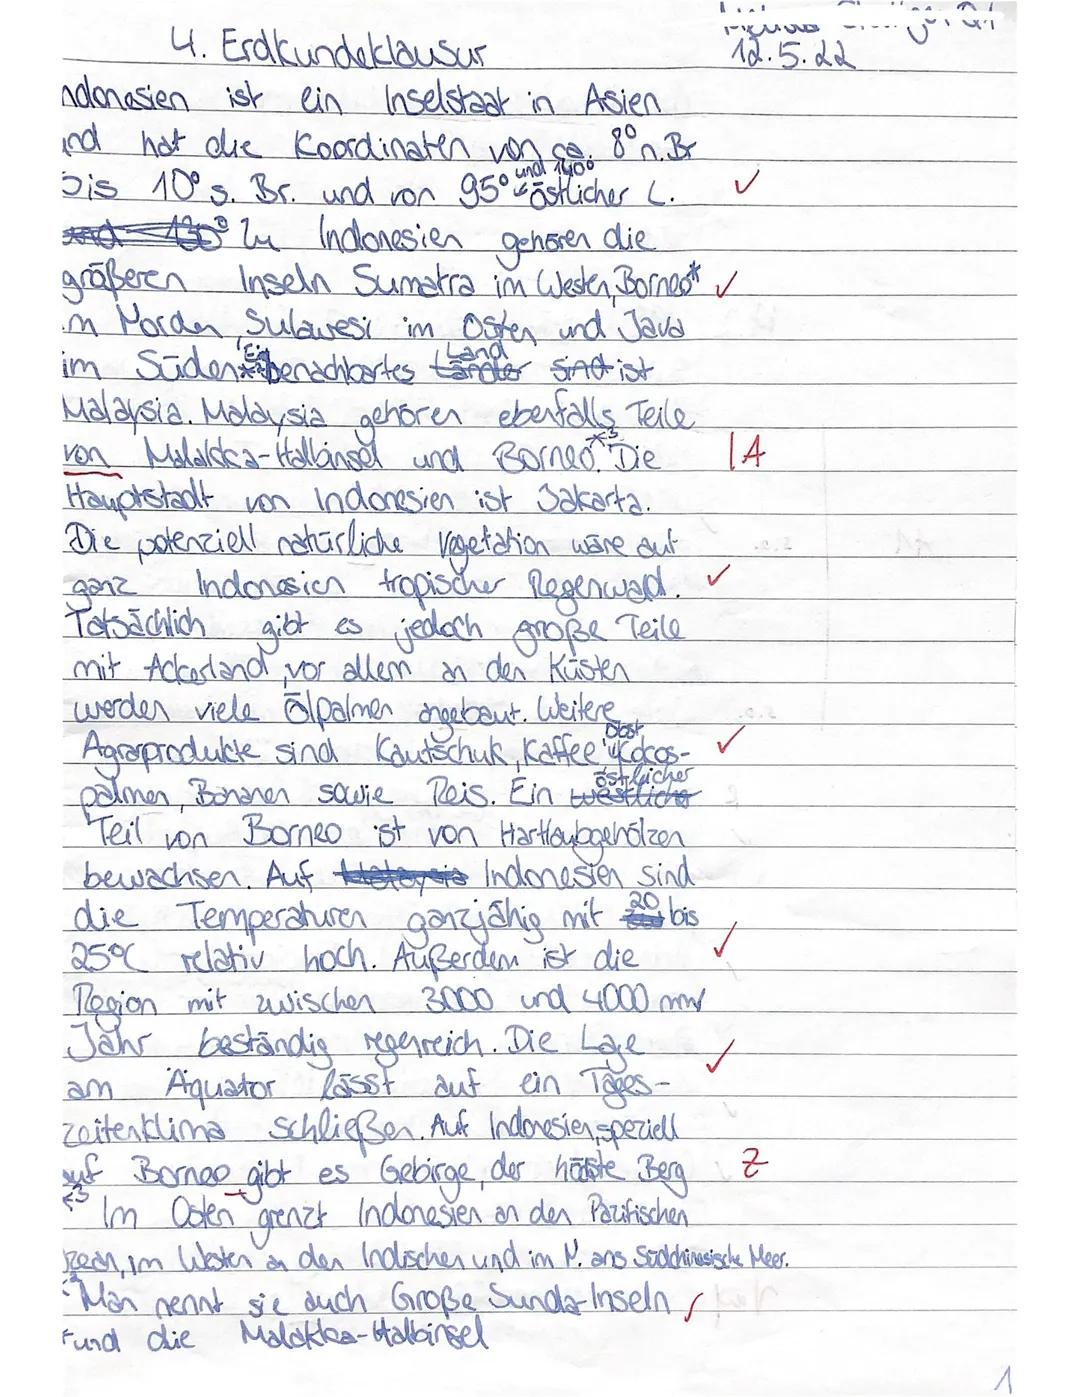 4. Erdkundeklausur
12.5.22
ndonesien ist ein Inselstaat in Asien
und hat die Koordinaten von ca. 8° n. Br
bis 10° s. Br. und von 95° und 140° östlicher L.
Zu Indonesien gehören die
größeren Inseln Sumatra im Westen, Borneo*
im Norden, Sulawesi im Osten und Java
im Süden.** Ein benachbartes Land ist
Malaysia. Malaysia gehören ebenfalls Teile
von Malakka-Halbinsel und Borneo.*3 Die
IA
Hauptstadt von Indonesien ist Jakarta.
Die potenziell natürliche Vegetation wäre auf
ganz Indonesien tropischer Regenwald.
Tatsächlich gibt es jedoch große Teile
mit Ackerland, vor allem an den Küsten
werden viele Ölpalmen angebaut. Weitere
Agrarprodukte sind Kautschuk, Kaffee, Obst, Kokos-
palmen, Bananen sowie Reis. Ein östlicher
Teil von Borneo ist von Hartlaubgehölzen
bewachsen. Auf Indonesien sind
die Temperaturen ganzjähig mit 20 bis
25°C relativ hoch. Außerdem ist die
Region mit zwischen 3000 und 4000 mm/
Jahr beständig regenreich. Die Lage
am Äquator lässt auf ein Tages-
zeitenklima schließen. Auf Indonesien, speziell
auf Borneo gibt es Gebirge, der höste Berg
Z
*3 Im Osten grenzt Indonesien an den Pazifischen
Ozean, im Westen an den Indischen und im N. ans Südchinesische Meer.
*2 Man nennt sie auch Große Sunda-Inseln
* und die Malakka-Halbinsel
1